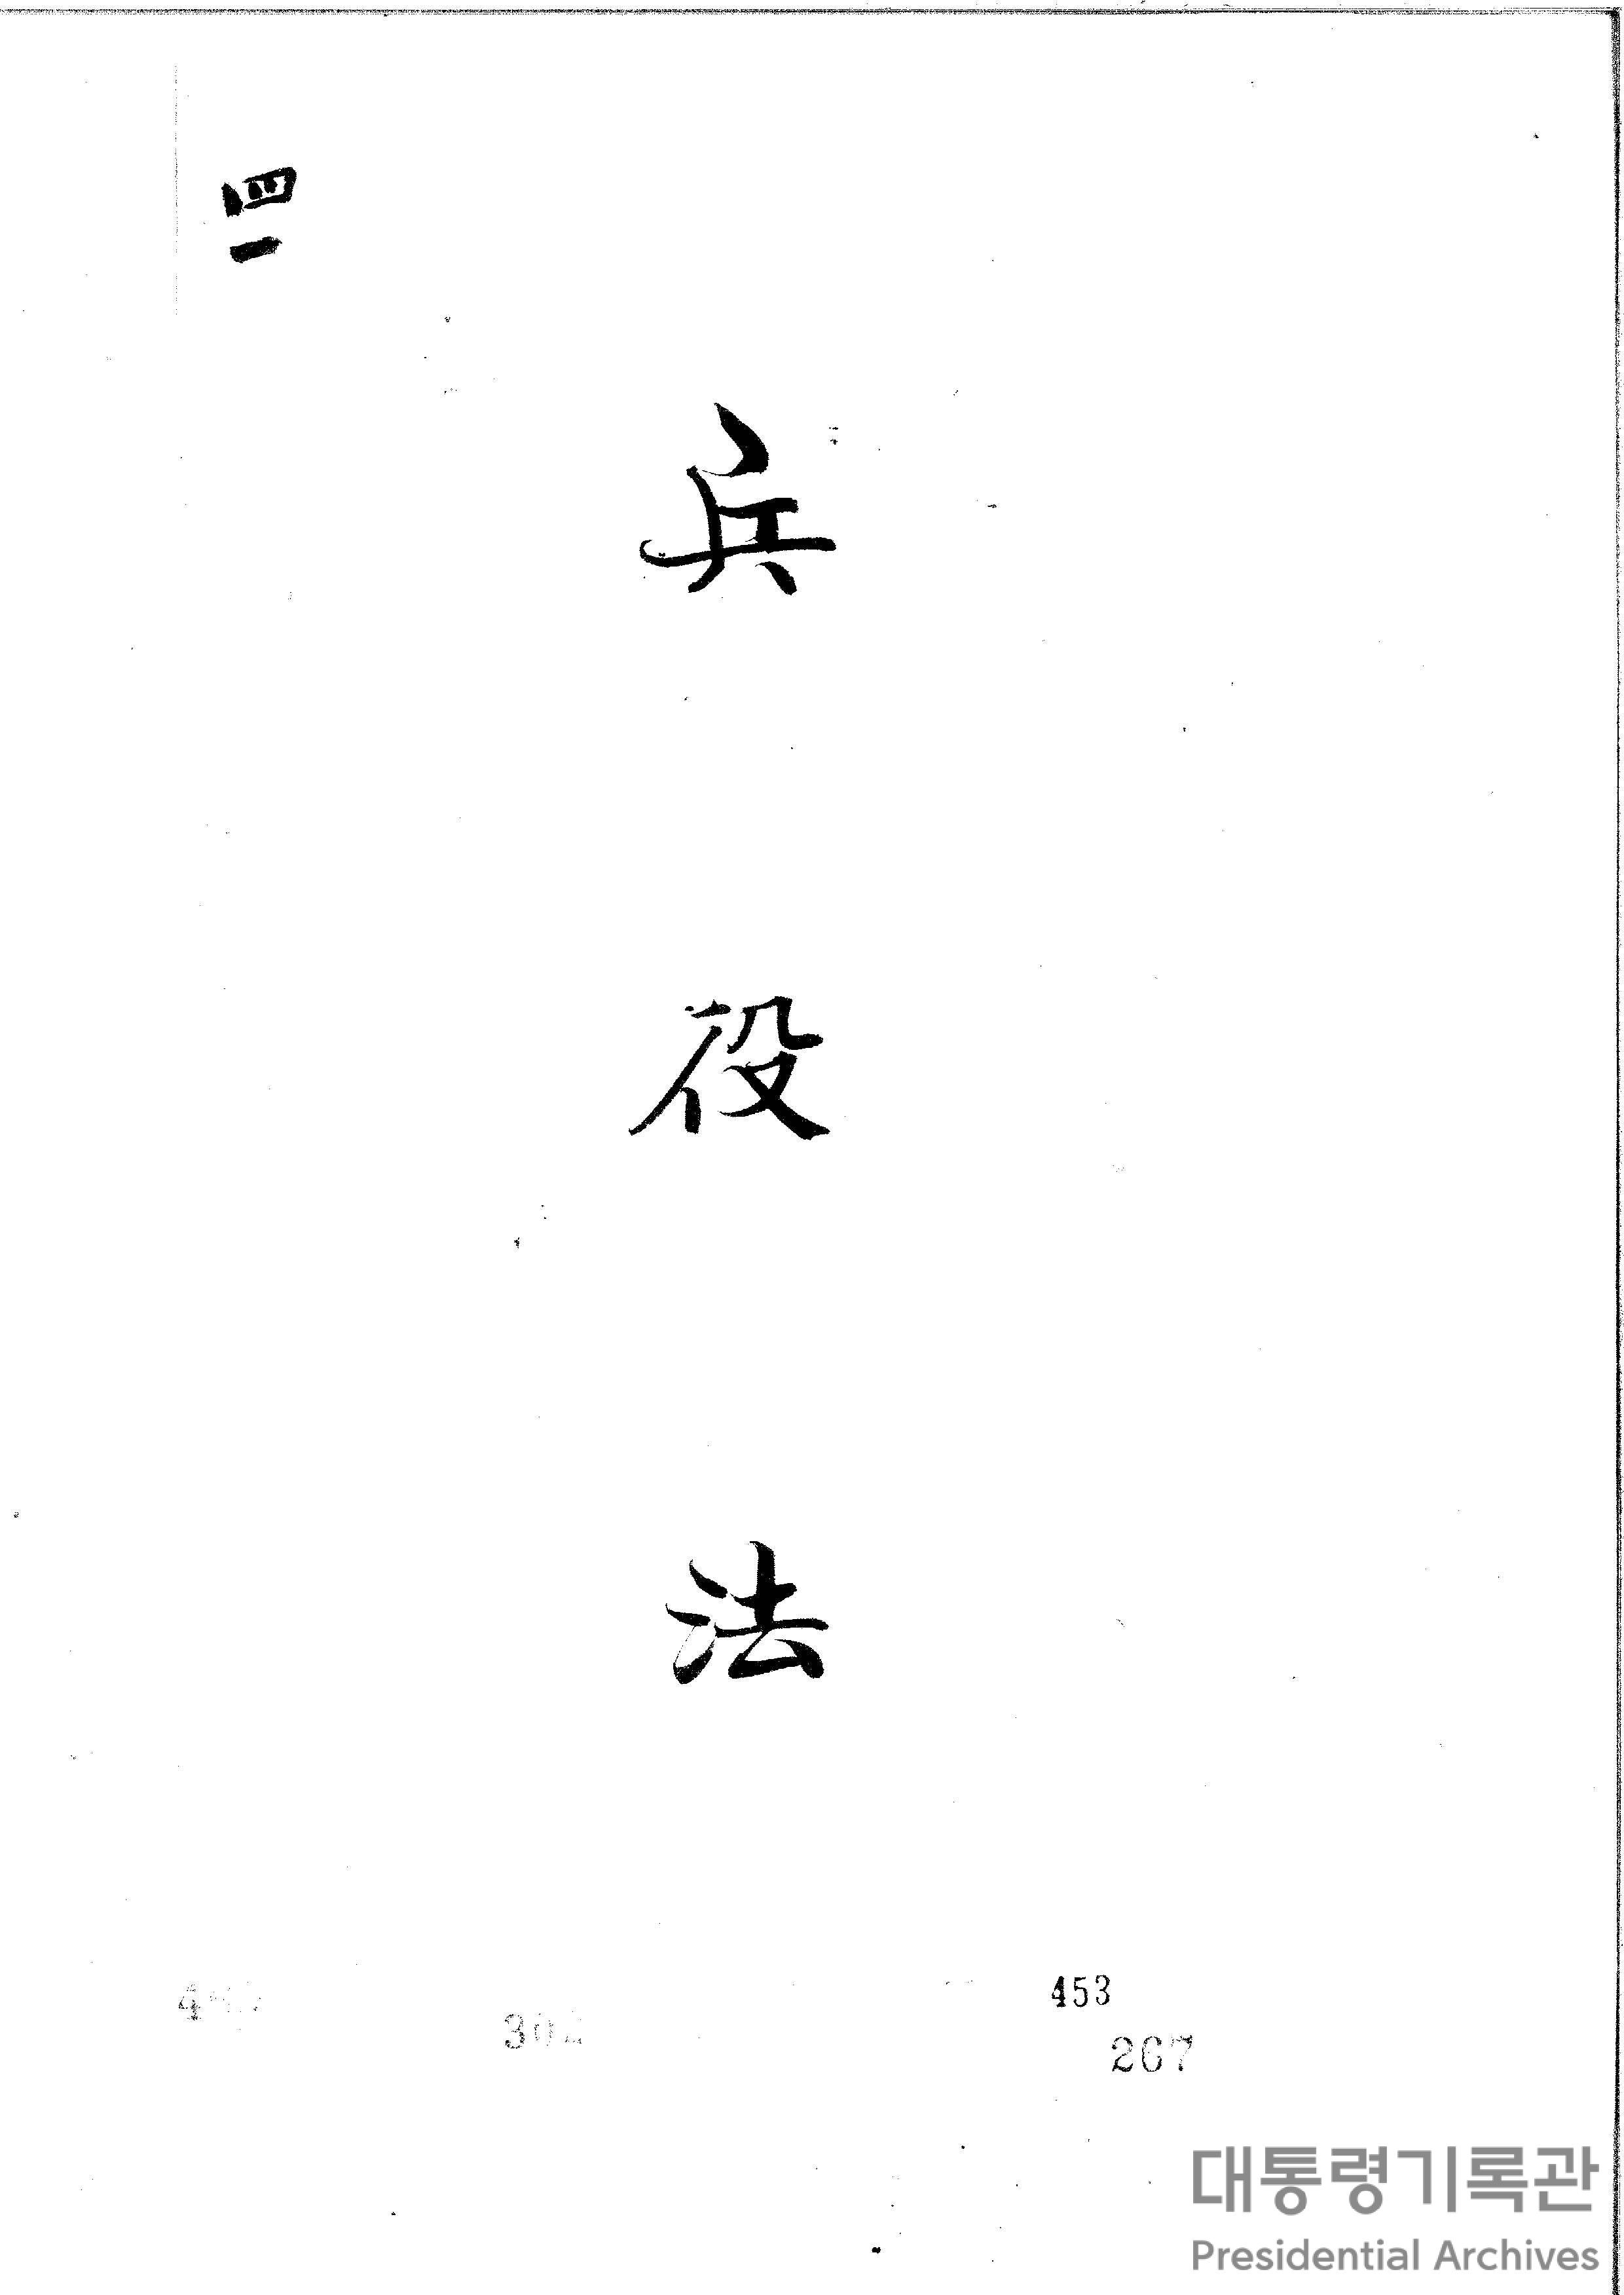 四一
兵役法
453
267
대통령기록관
Presidential Archives